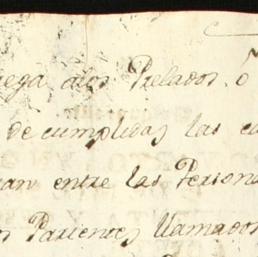 ega a los Prelados, ô
de cumplidas las ca
an entre las Persona
Parientes llamados